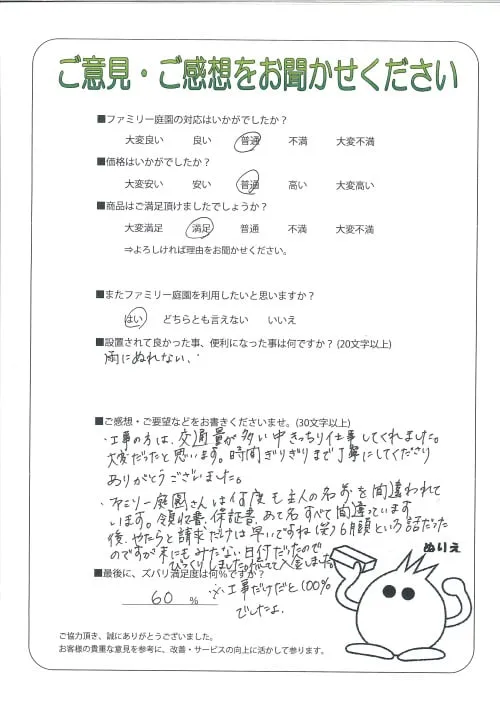 ご意見・ご感想をお聞かせください
■ファミリー庭園の対応はいかがでしたか？
大変良い 良い 普通 不満 大変不満
■価格はいかがでしたか？
大変安い 安い 普通 高い 大変高い
■商品はご満足頂けましたでしょうか？
大変満足 満足 普通 不満 大変不満
⇒よろしければ理由をお聞かせください。
■またファミリー庭園を利用したいと思いますか？
はい どちらとも言えない いいえ
■設置されて良かった事、便利になった事は何ですか？(20文字以上)
雨にぬれない、
■ご感想・ご要望などをお書きくださいませ。(30文字以上)
・工事の方は、交通量が多い中きっちり仕事してくれました。
大変だったと思います。時間ぎりぎりまで丁寧にしてくださり
ありがとうございました。
・ファミリー庭園さんは何度も主人の名前を間違われて
います。領収書、保証書、あて名すべて間違っています
後、やたらと請求だけは早いですね(笑)6月頭という話だった
のですが末にもみたない日付だったので
びっくりしました。あわてて入金しました。
■最後に、ズバリ満足度は何％ですか？
60 %
※工事だけだと100%
でしたよ。
ぬりえ
ご協力頂き、誠にありがとうございました。
お客様の貴重な意見を参考に、改善・サービスの向上に活かして参ります。